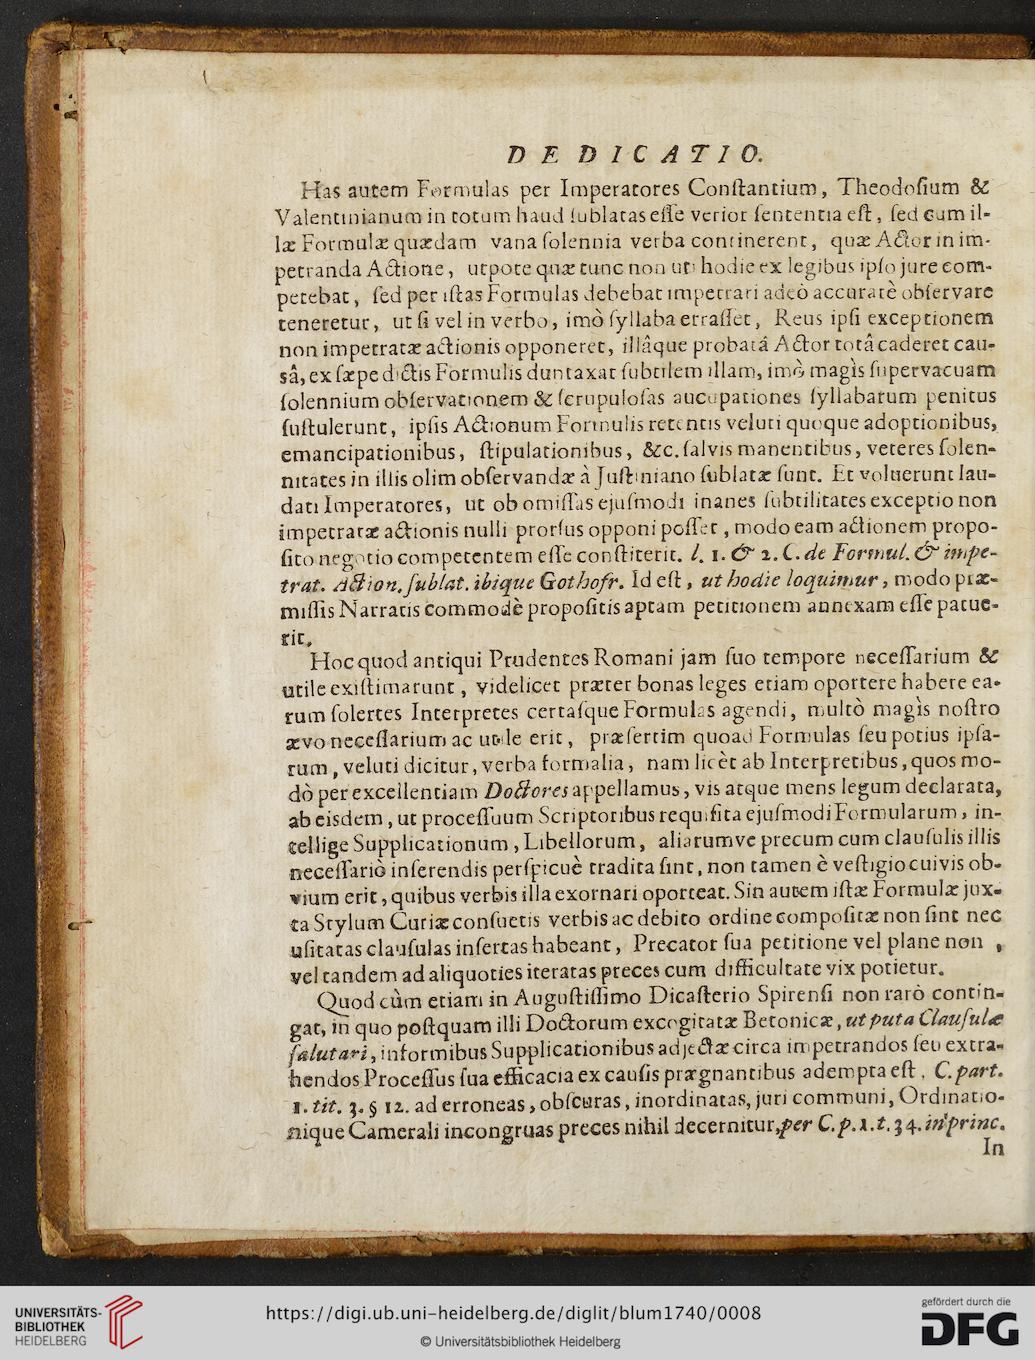 DEDICATIO.
Has autem Formulas per Imperatores Conſtantium, Theodoſium &
Valentinianum in totum haud ſublatas eſſe verior ſententia eſt, ſed cum il-
læ Formulæ quædam vana ſolennia verba continerent, quæ Actor in im-
petranda Actione, utpote quæ tunc non uti hodie ex legibus ipſo jure com-
petebat, ſed per iſtas Formulas debebat impetrari adeò accuratè obſervare
teneretur, ut ſi vel in verbo, imò ſyllaba erraſſet, Reus ipſi exceptionem
non impetratæ actionis opponeret, illâque probatâ Actor totâ caderet cau-
sâ, ex ſæpe dictis Formulis duntaxat ſubtilem illam, imò magìs ſupervacuam
ſolennium obſervationem & ſcrupuloſas aucupationes ſyllabarum penitus
ſuſtulerunt, ipſis Actionum Formulis retentis veluti quoque adoptionibus,
emancipationibus, ſtipulationibus, &c. ſalvis manentibus, veteres ſolen-
nitates in illis olim obſervandæ à Juſtiniano ſublatæ ſunt. Et voluerunt lau-
dati Imperatores, ut ob omiſſas ejuſmodi inanes ſubtilitates exceptio non
impetratæ actionis nulli prorſus opponi poſſet, modo eam actionem propo-
ſito negotio competentem eſſe conſtiterit. l. 1. & 2. C. de Formul. & impe-
trat. Action. ſublat. ibique Gothofr. Id eſt, ut hodie loquimur, modo præ-
miſſis Narratis commodè propoſitis aptam petitionem annexam eſſe patue-
rit.
Hoc quod antiqui Prudentes Romani jam ſuo tempore neceſſarium &
utile exiſtimarunt, videlicet præter bonas leges etiam oportere habere ea-
rum ſolertes Interpretes certaſque Formulas agendi, multò magìs noſtro
ævo neceſſarium ac utile erit, præſertim quoad Formulas ſeu potius ipſa-
rum, veluti dicitur, verba formalia, nam licèt ab Interpretibus, quos mo-
dò per excellentiam Doctores appellamus, vis atque mens legum declarata,
ab eisdem, ut proceſſuum Scriptoribus requiſita ejuſmodi Formularum, in-
tellige Supplicationum, Libellorum, aliarumve precum cum clauſulis illis
neceſſariò inſerendis perſpicuè tradita ſint, non tamen è veſtigio cuivis ob-
vium erit, quibus verbis illa exornari oporteat. Sin autem iſtæ Formulæ jux-
ta Stylum Curiæ conſuetis verbis ac debito ordine compoſitæ non ſint nec
uſitatas clauſulas inſertas habeant, Precator ſua petitione vel plane non,
vel tandem ad aliquoties iteratas preces cum difficultate vix potietur.
Quod cùm etiam in Auguſtiſſimo Dicaſterio Spirenſi non rarò contin-
gat, in quo poſtquam illi Doctorum excogitatæ Betonicæ, ut puta Clauſulæ
ſalutari, informibus Supplicationibus adjectæ circa impetrandos ſeu extra-
hendos Proceſſus ſua efficacia ex cauſis prægnantibus adempta eſt, C. part.
1. tit. 3. § 12. ad erroneas, obſcuras, inordinatas, juri communi, Ordinatio-
nique Camerali incongruas preces nihil decernitur, per C. p. 1. t. 34. in princ.
In
UNIVERSITÄTS-
BIBLIOTHEK
HEIDELBERG
https://digi.ub.uni-heidelberg.de/diglit/blum1740/0008
© Universitätsbibliothek Heidelberg
gefördert durch die
DFG